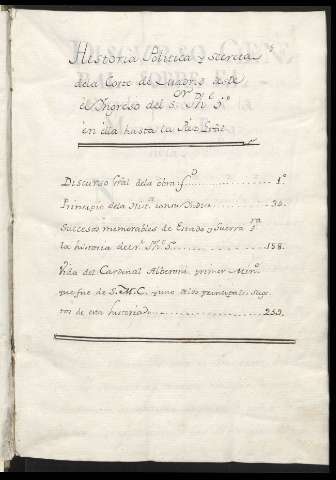 Historia Politica y secreta
de la Corte de Madrid desde
el Yngreso del Sor Dn Phe 5o
en ella hasta la Paz Gral
Discurso Gral de la obra fo 1o
Principio de la Hista con su Yndice 30.
Succesos memorables de Estado y Guerra pra
la historia del Sr. Phe. 5o. 158.
Vida del Cardenal Alberoni primer Mino
que fue de S.M.C. y uno de los principales suge
tos de esta historia 259.